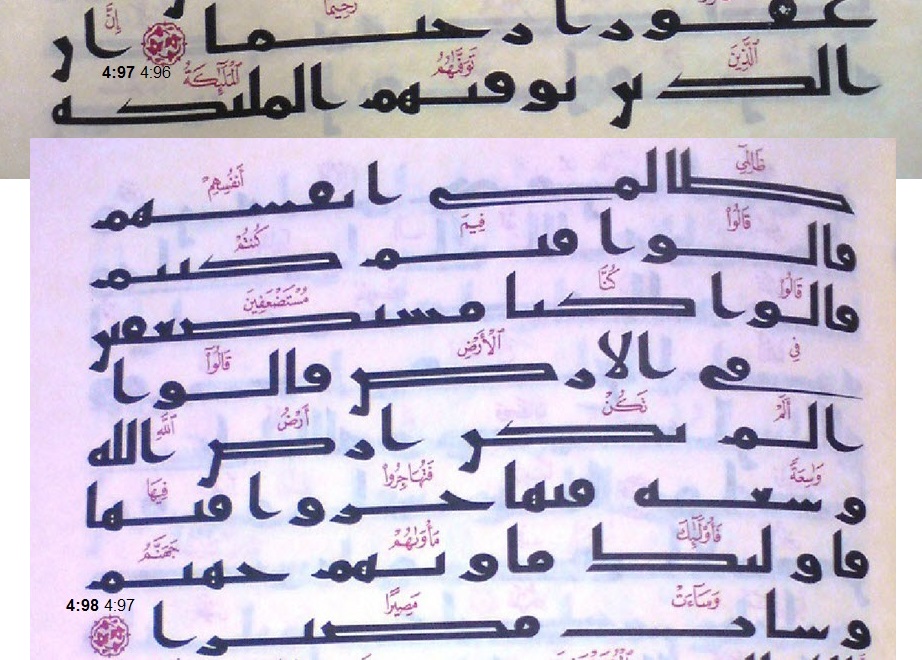 رَحِيمًا إِنَّ
غفورا رحيما ان
4:97 4:96
ٱلَّذِينَ تَوَفَّىٰهُمُ ٱلْمَلَٰٓئِكَةُ
الذين توفيهم الملئكه
ظَالِمِىٓ أَنفُسِهِمْ
ظالمى انفسهم
قَالُوا۟ فِيمَ كُنتُمْ
قالوا فيم كنتم
قَالُوا۟ كُنَّا مُسْتَضْعَفِينَ
قالوا كنا مستضعفين
فِى ٱلْأَرْضِ قَالُوٓا۟
فى الارض قالوا
أَلَمْ تَكُنْ أَرْضُ ٱللَّهِ
الم تكن ارض الله
وَٰسِعَةً فَتُهَاجِرُوا۟ فِيهَا
وسعه فتهاجروا فيها
فَأُو۟لَٰٓئِكَ مَأْوَىٰهُمْ جَهَنَّمُ
فاوليك ماويهم جهنم
4:98 4:97
وَسَآءَتْ مَصِيرًا
وسات مصيرا